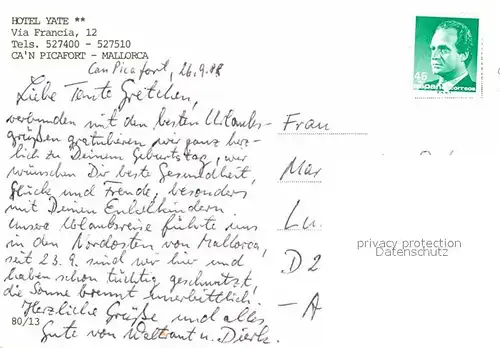 HOTEL YATE **
Vía Francia, 12
Tels. 527400 - 527510
CA'N PICAFORT - MALLORCA
Can Picafort, 26.9.88
Liebe Tante Gretchen,
verbunden mit den besten Urlaubs-
grüßen gratulieren wir ganz herz-
lich zu Deinem Geburtstag, wir
wünschen Dir beste Gesundheit,
Glück und Freude, besonders
mit Deinen Enkelkindern.
Unsere Urlaubsreise führte uns
in den Nordosten von Mallorca,
seit 23.9. sind wir hier und
haben schon tüchtig geschwitzt,
die Sonne brennt unerbittlich.
Herzliche Grüße und alles
Gute von Waltraut u. Dierk.
80/13
45
correos
Frau
Mar
Lu
D 2
-A
privacy protection
Datenschutz